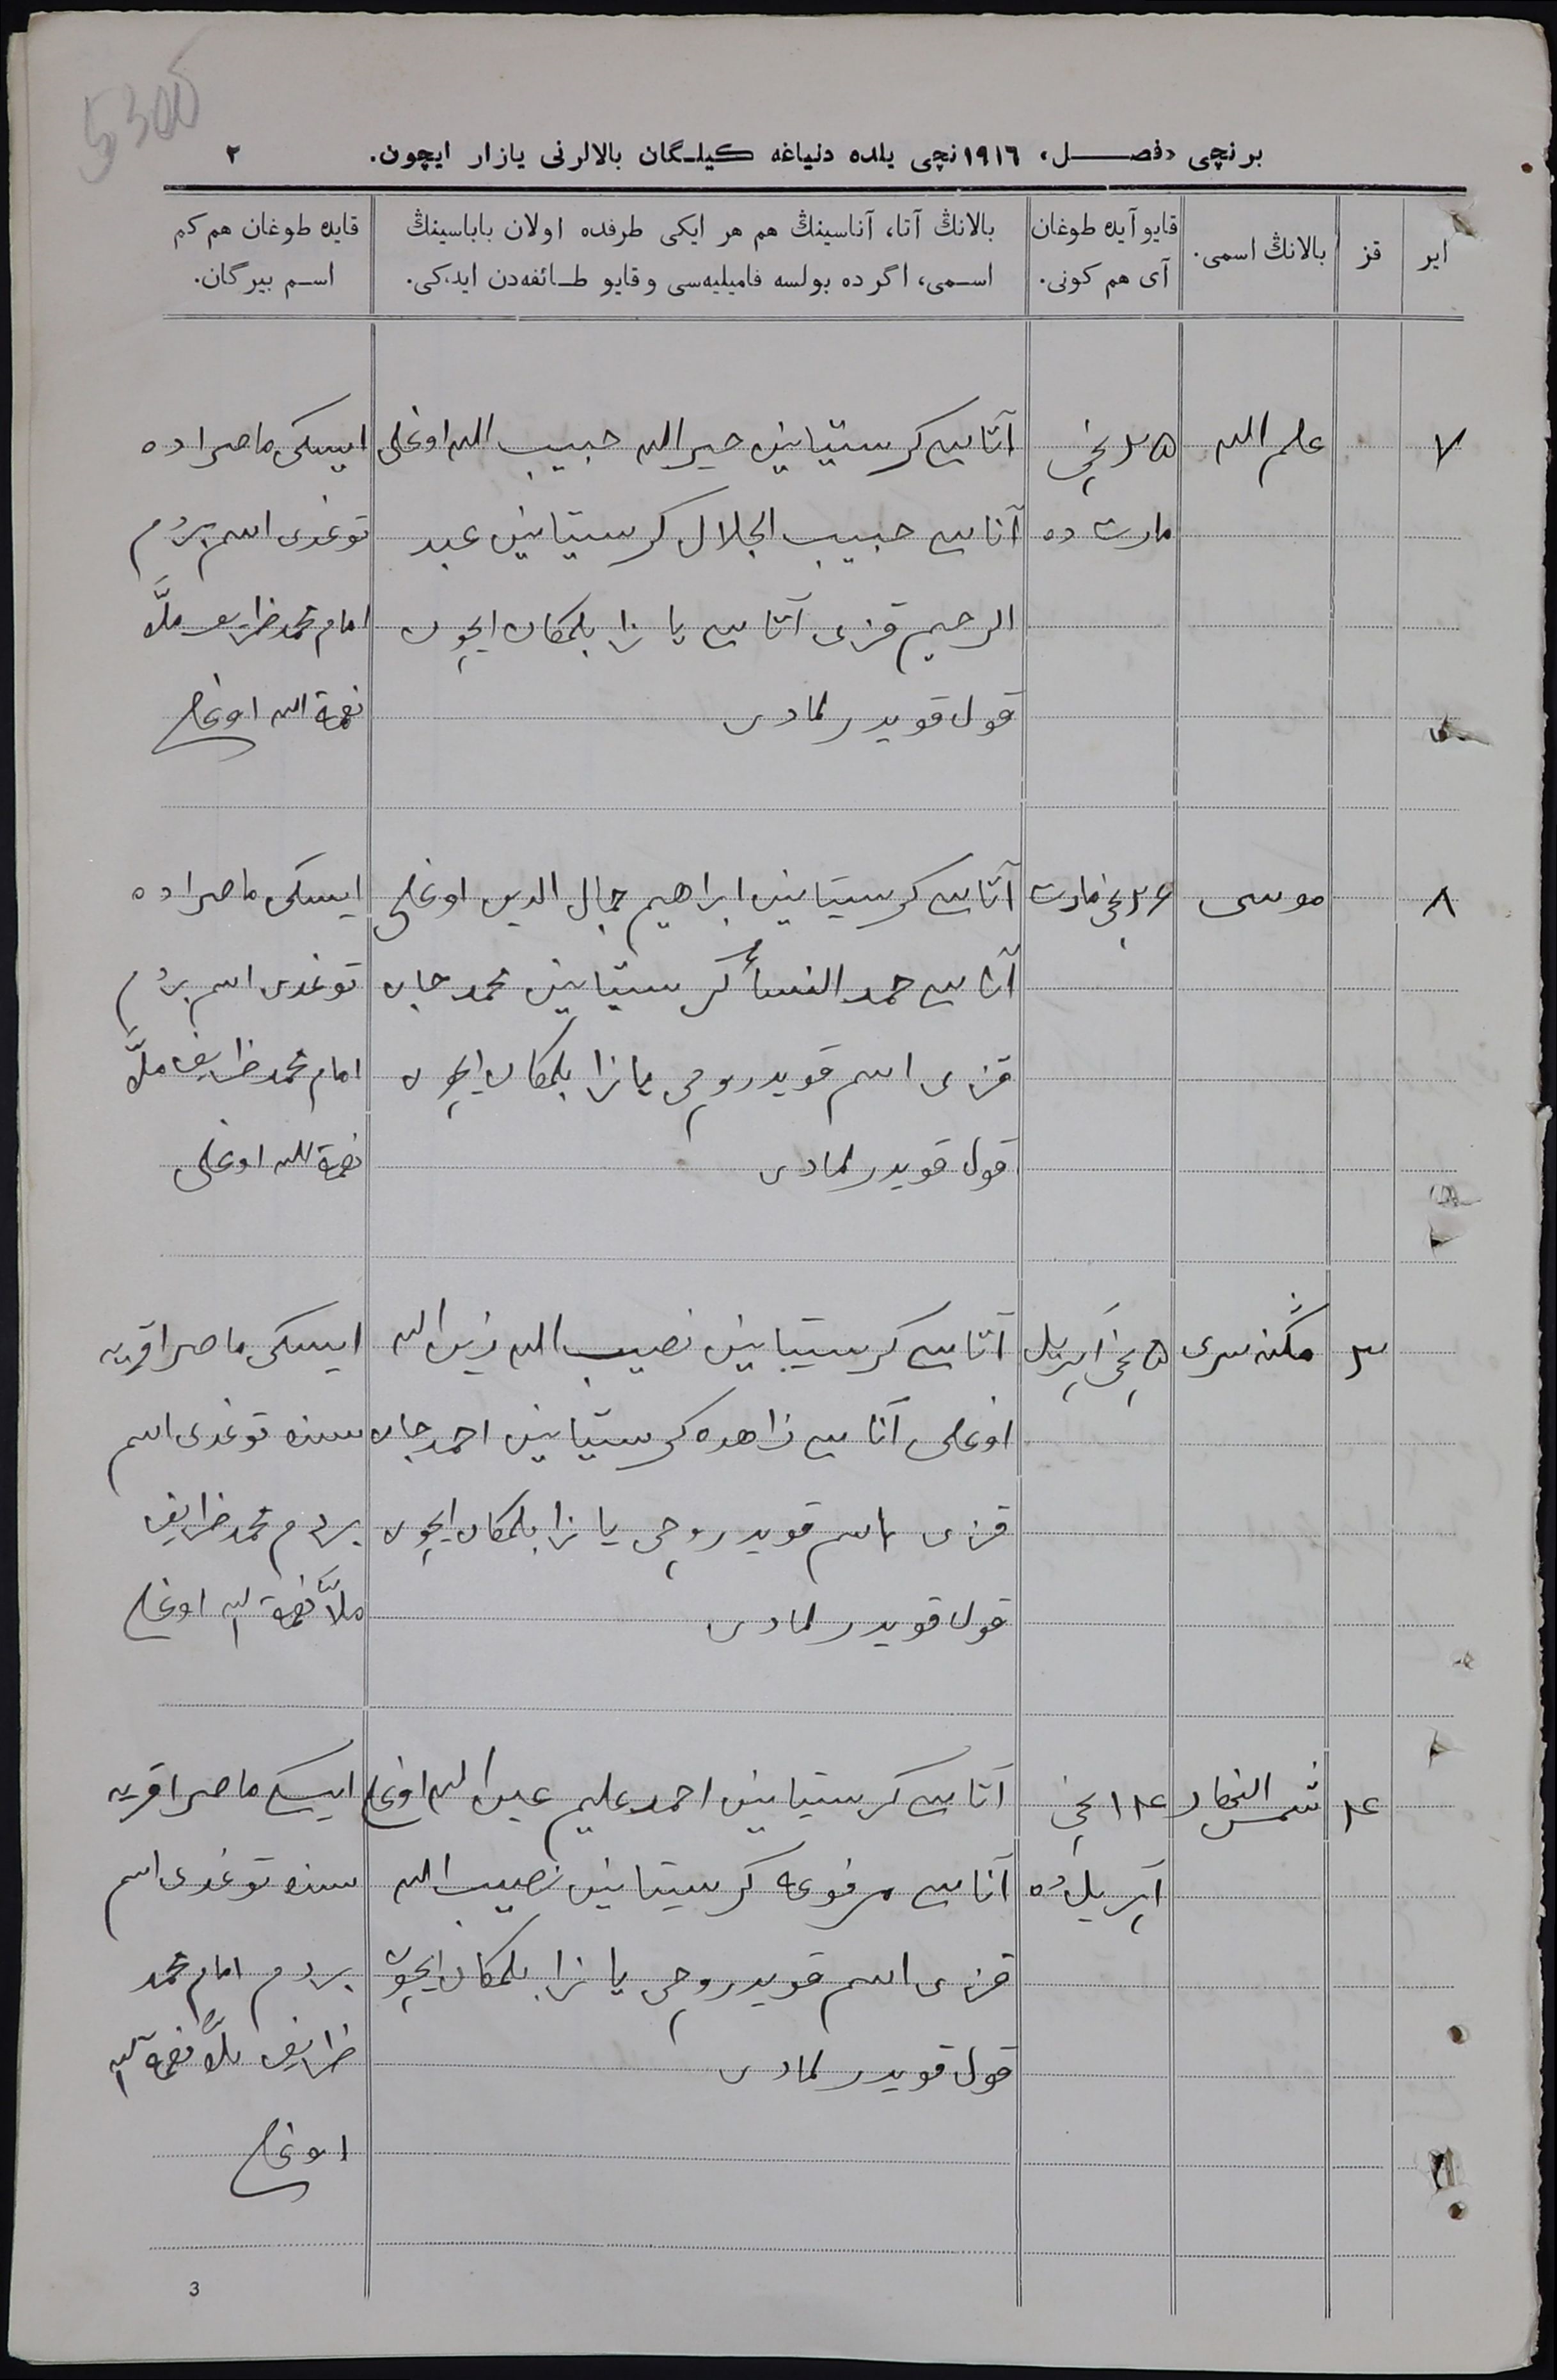 5300
برنچی «فصل» ١٩١٦نچی یلده دنیاغه کیلگان بالالرنی یازار ایچون. ٢
ایر
قز
بالانڭ اسمی.
قایو آیده طوغان
آی هم کونی.
بالانڭ آتا، آناسینڭ هم هر ایکی طرفده اولان باباسینڭ
اسمی، اگرده بولسه فامیلیه‌سی و قایو طائفه‌دن ایدکی.
قایده طوغان هم کم
اسم بیرگان.
٧ علم الله ٢٥ نچی آتاسی کرستیانین خیرالله حبیب الله اوغلی ایسکی ماصراده
مارت ده آناسی حبیب الجلال کرستیانین عبد توغدی اسم بردم
الرحیم قزی آتاسی یازا بلمکان ایچون امام محمد ظریف ملّا
قول قویدرلمادی نعمة الله اوغلی
٨ موسی ٢٦ نچی مارت آتاسی کرستیانین ابراهیم جمال الدین اوغلی ایسکی ماصراده
آناسی حمد النساء کرستیانین محمد جان توغدی اسم بردم
قزی اسم قویدروچی یازا بلمکان ایچون امام محمد ظریف ملّا
قول قویدرلمادی نعمة الله اوغلی
٣ مسکنه سری ٥ نچی آپریل آتاسی کرستیانین نصیب الله زین الله ایسکی ماصرا قریه
اوغلی آناسی زاهده کرستیانین احمد جان سنده توغدی اسم
قزی اسم قویدروچی یازا بلمکان ایچون بردم محمد ظریف
قول قویدرلمادی ملّا نعمة الله اوغلی
٤ شمس النهار ١٤ نچی آتاسی کرستیانین احمد علیم عین الله اوغلی ایسکی ماصرا قریه
آپریل ده آناسی مرفوعه کرستیانین نصیب الله سنده توغدی اسم
قزی اسم قویدروچی یازا بلمکان ایچون بردم امام محمد
قول قویدرلمادی ظریف ملّا نعمة الله
اوغلی
3